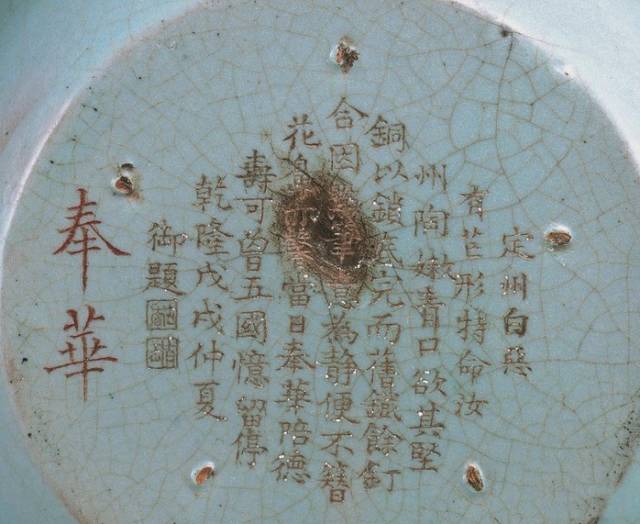 定州白惡
有芒形特命汝
州陶嫩青口欲其堅
銅以鎖底完而舊鐵餘釘
合因點筆意為靜便不簪
花鼻亦馨當日奉華陪德
壽可曾五國憶留停
乾隆戊戌仲夏
御題
奉華